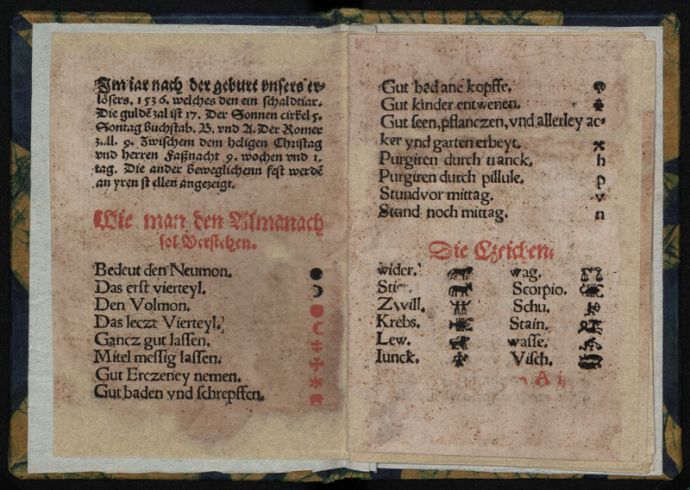 Im iar nach der geburt vnsers er-
lösers. 1536. welches den ein schaldtiar.
Die guldē zal ist 17. Der Sonnen cirkel 5.
Sontag buchstab. B. vnd A. Der Romer
z..ll. 9. Zwischem dem heligen Christag
vnd herren Faßnacht 9. wochen vnd 1.
tag. Die ander beweglichenn fest werdē
an yren st ellen angezeigt.
Wie man den Almanach
sol Verstehen.
Bedeut den Neumon.
Das erst vierteyl.
Den Volmon.
Das leczt Vierteyl.
Gancz gut lassen.
Mitel messig lassen.
Gut Erczeney nemen.
Gut baden vnd schrepffen.
Gut bad ane kopffe.
Gut kinder entwenen.
Gut seen, pflanczen, vnd allerley ac-
ker vnd garten erbeyt.
Purgiren durch tranck. h
Purgiren durch pillule. p
Stund vor mittag. v
Stund noch mittag. n
Die Czeichen.
wider. wag.
Stir. Scorpio.
Zwill. Schu.
Krebs. Stain.
Lew. wasse.
Iunck. Visch.
A